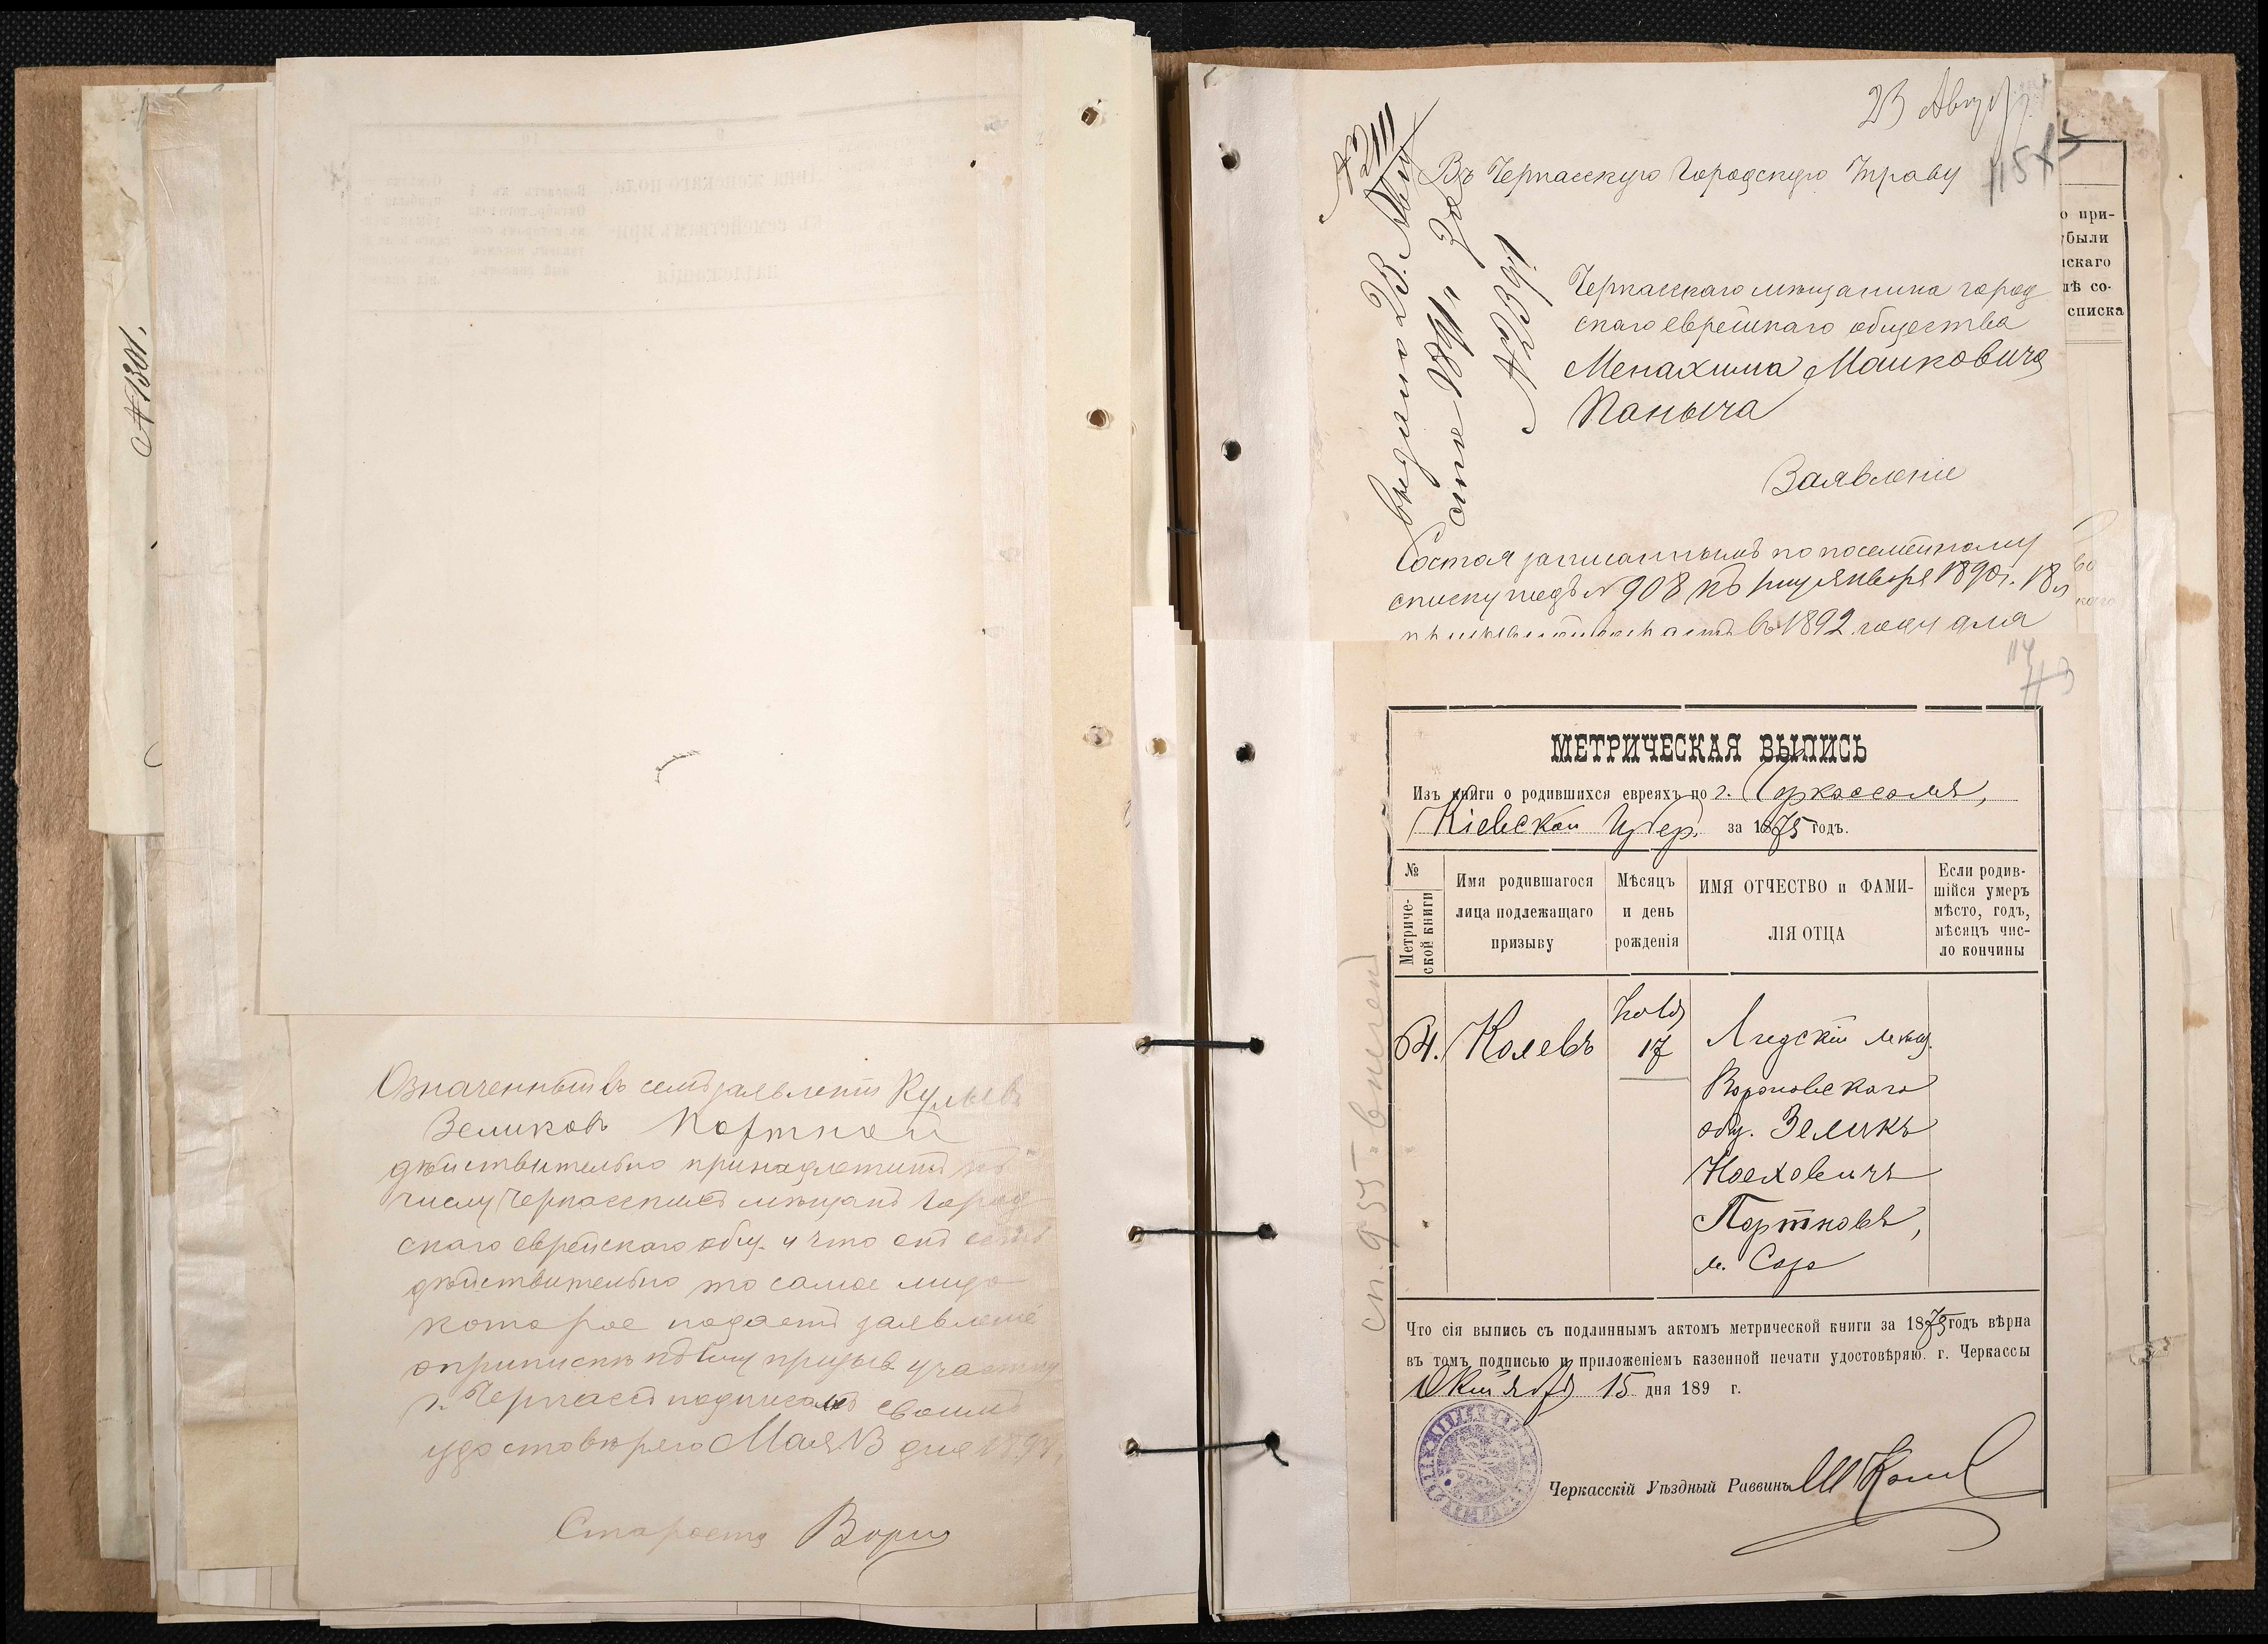 № 1301.
Означенный въ семъ заявленіи Кульевъ
Зеликовъ Портной
дѣйствительно принадлежитъ къ
числу Черкасскихъ мѣщанъ город
скаго еврейскаго общ. и что онъ есть
дѣйствительно то самое лицо
которое подаетъ заявленіе
о припискѣ къ призыв участку
г. Черкассъ подписомъ своимъ
удостовѣряю Мая 13 дня
Староста
23 Август
115
Въ Черкасскую Городскую Управу
№ 2111
выдано 23. Авгу
ста 1891 г. за
№ 2391
Черкасскаго мѣщанина город
скаго еврейскаго общества
Менахима Машковича
Паныча
Заявленіе
Состоя записаннымъ по посемейному
списку подъ № 908 къ 1му января 1890 г. 18 л
въ 1892 году для
о при-
были
скаго
лѣ со-
списка
114
МЕТРИЧЕСКАЯ ВЫПИСЬ
Изъ книги о родившихся евреяхъ по г. Черкассамъ,
Кіевской Губер. за 1875 годъ.
№
Метриче-
ской книги
Имя родившагося
лица подлежащаго
призыву
Мѣсяцъ
и день
рожденія
ИМЯ ОТЧЕСТВО и ФАМИ-
ЛІЯ ОТЦА
Если родив-
шійся умеръ
мѣсто, годъ,
мѣсяцъ чис-
ло кончины
64.
Колевъ
17
Лидскій мѣщ.
Вороновскаго
общ. Зеликъ
Ноеховичъ
Портновъ,
м. Сора
сп. 955
Что сія выпись съ подлиннымъ актомъ метрической книги за 1875 годъ вѣрна
въ томъ подписью и приложеніемъ казенной печати удостовѣряю. г. Черкассы
Октября 15 дня 189 г.
Черкасскій Уѣздный Раввинъ